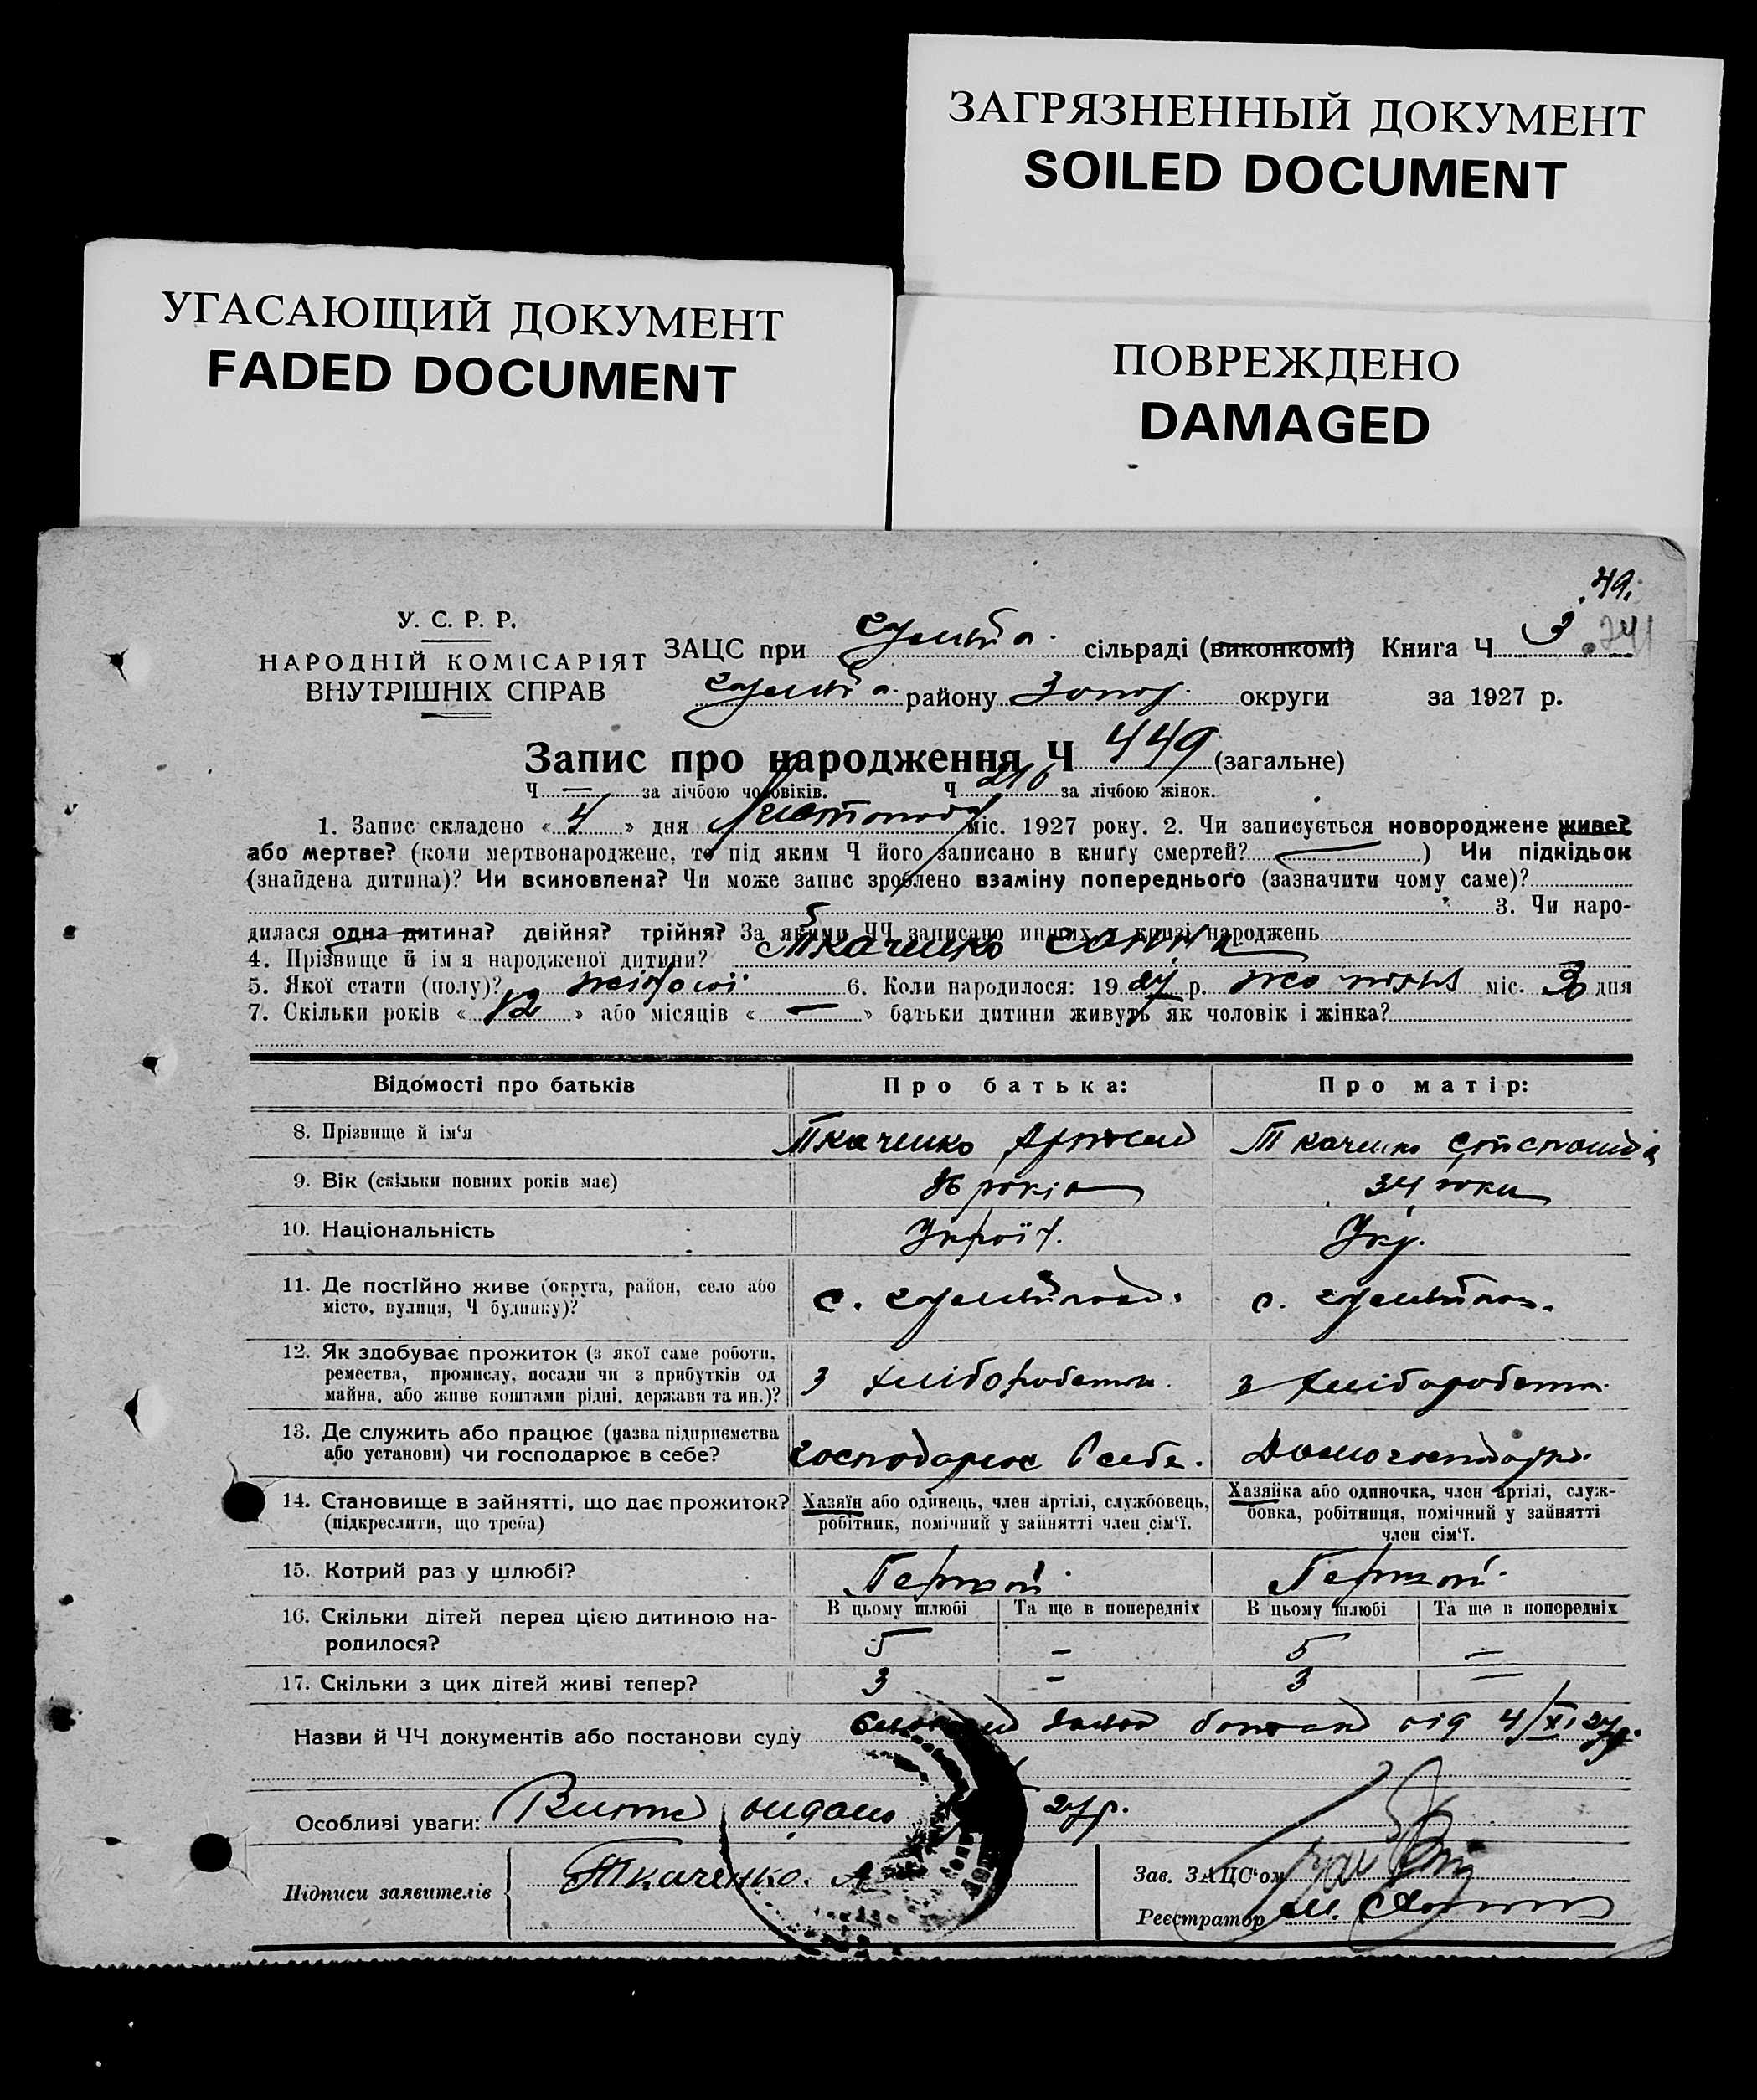 ЗАГРЯЗНЕННЫЙ ДОКУМЕНТ
SOILED DOCUMENT
УГАСАЮЩИЙ ДОКУМЕНТ
FADED DOCUMENT
ПОВРЕЖДЕНО
DAMAGED
У. С. Р. Р.
НАРОДНІЙ КОМІСАРІЯТ
ВНУТРІШНІХ СПРАВ
ЗАЦС при сільраді (виконкомі) Книга Ч 3
району Запор. округи за 1927 р.
Запис про народження Ч 449 (загальне)
Ч — за лічбою чоловіків. Ч 216 за лічбою жінок.
1. Запис складено « 4 » дня Листопада міс. 1927 року. 2. Чи записується новороджене живе?
або мертве? (коли мертвонароджене, то під яким Ч його записано в книгу смертей? — ) Чи підкідьок
(знайдена дитина)? Чи всиновлена? Чи може запис зроблено взаміну попереднього (зазначити чому саме)?
3. Чи наро-
дилася одна дитина? двійня? трійня? За якими ЧЧ записано инших у книзі народжень
4. Прізвище й ім'я народженої дитини? Ткаченко
5. Якої стати (полу)? жіночої 6. Коли народилося: 1927 р. жовтня міс. дня
7. Скільки років « 12 » або місяців « — » батьки дитини живуть як чоловік і жінка?
Відомості про батьків Про батька: Про матір:
8. Прізвище й ім'я Ткаченко Ткаченко
9. Вік (скільки повних років має) 36 років 34 роки
10. Національність Україн. Укр.
11. Де постійно живе (округа, район, село або
місто, вулиця, Ч будинку)? с. с.
12. Як здобуває прожиток (з якої саме роботи,
ремества, промислу, посади чи з прибутків од
майна, або живе коштами рідні, держави та ин.)? з хліборобства з хліборобства
13. Де служить або працює (назва підприємства
або установи) чи господарює в себе? господарює в себе. Домогосподарка
14. Становище в зайнятті, що дає прожиток?
(підкреслити, що треба)
Хазяїн або одинець, член артілі, службовець,
робітник, помічний у зайнятті член сім'ї.
Хазяйка або одиночка, член артілі, служ-
бовка, робітниця, помічний у зайнятті
член сім'ї.
15. Котрий раз у шлюбі? Первой Первой
16. Скільки дітей перед цією дитиною на-
родилося?
В цьому шлюбі Та ще в попередніх В цьому шлюбі Та ще в попередніх
5 — 5 —
17. Скільки з цих дітей живі тепер? 3 — 3 —
Назви й ЧЧ документів або постанови суду від 4/XI 27 р.
Особливі уваги: видано 27 р.
Підписи заявителів Ткаченко. А
Зав. ЗАЦС'ом
Реєстратор